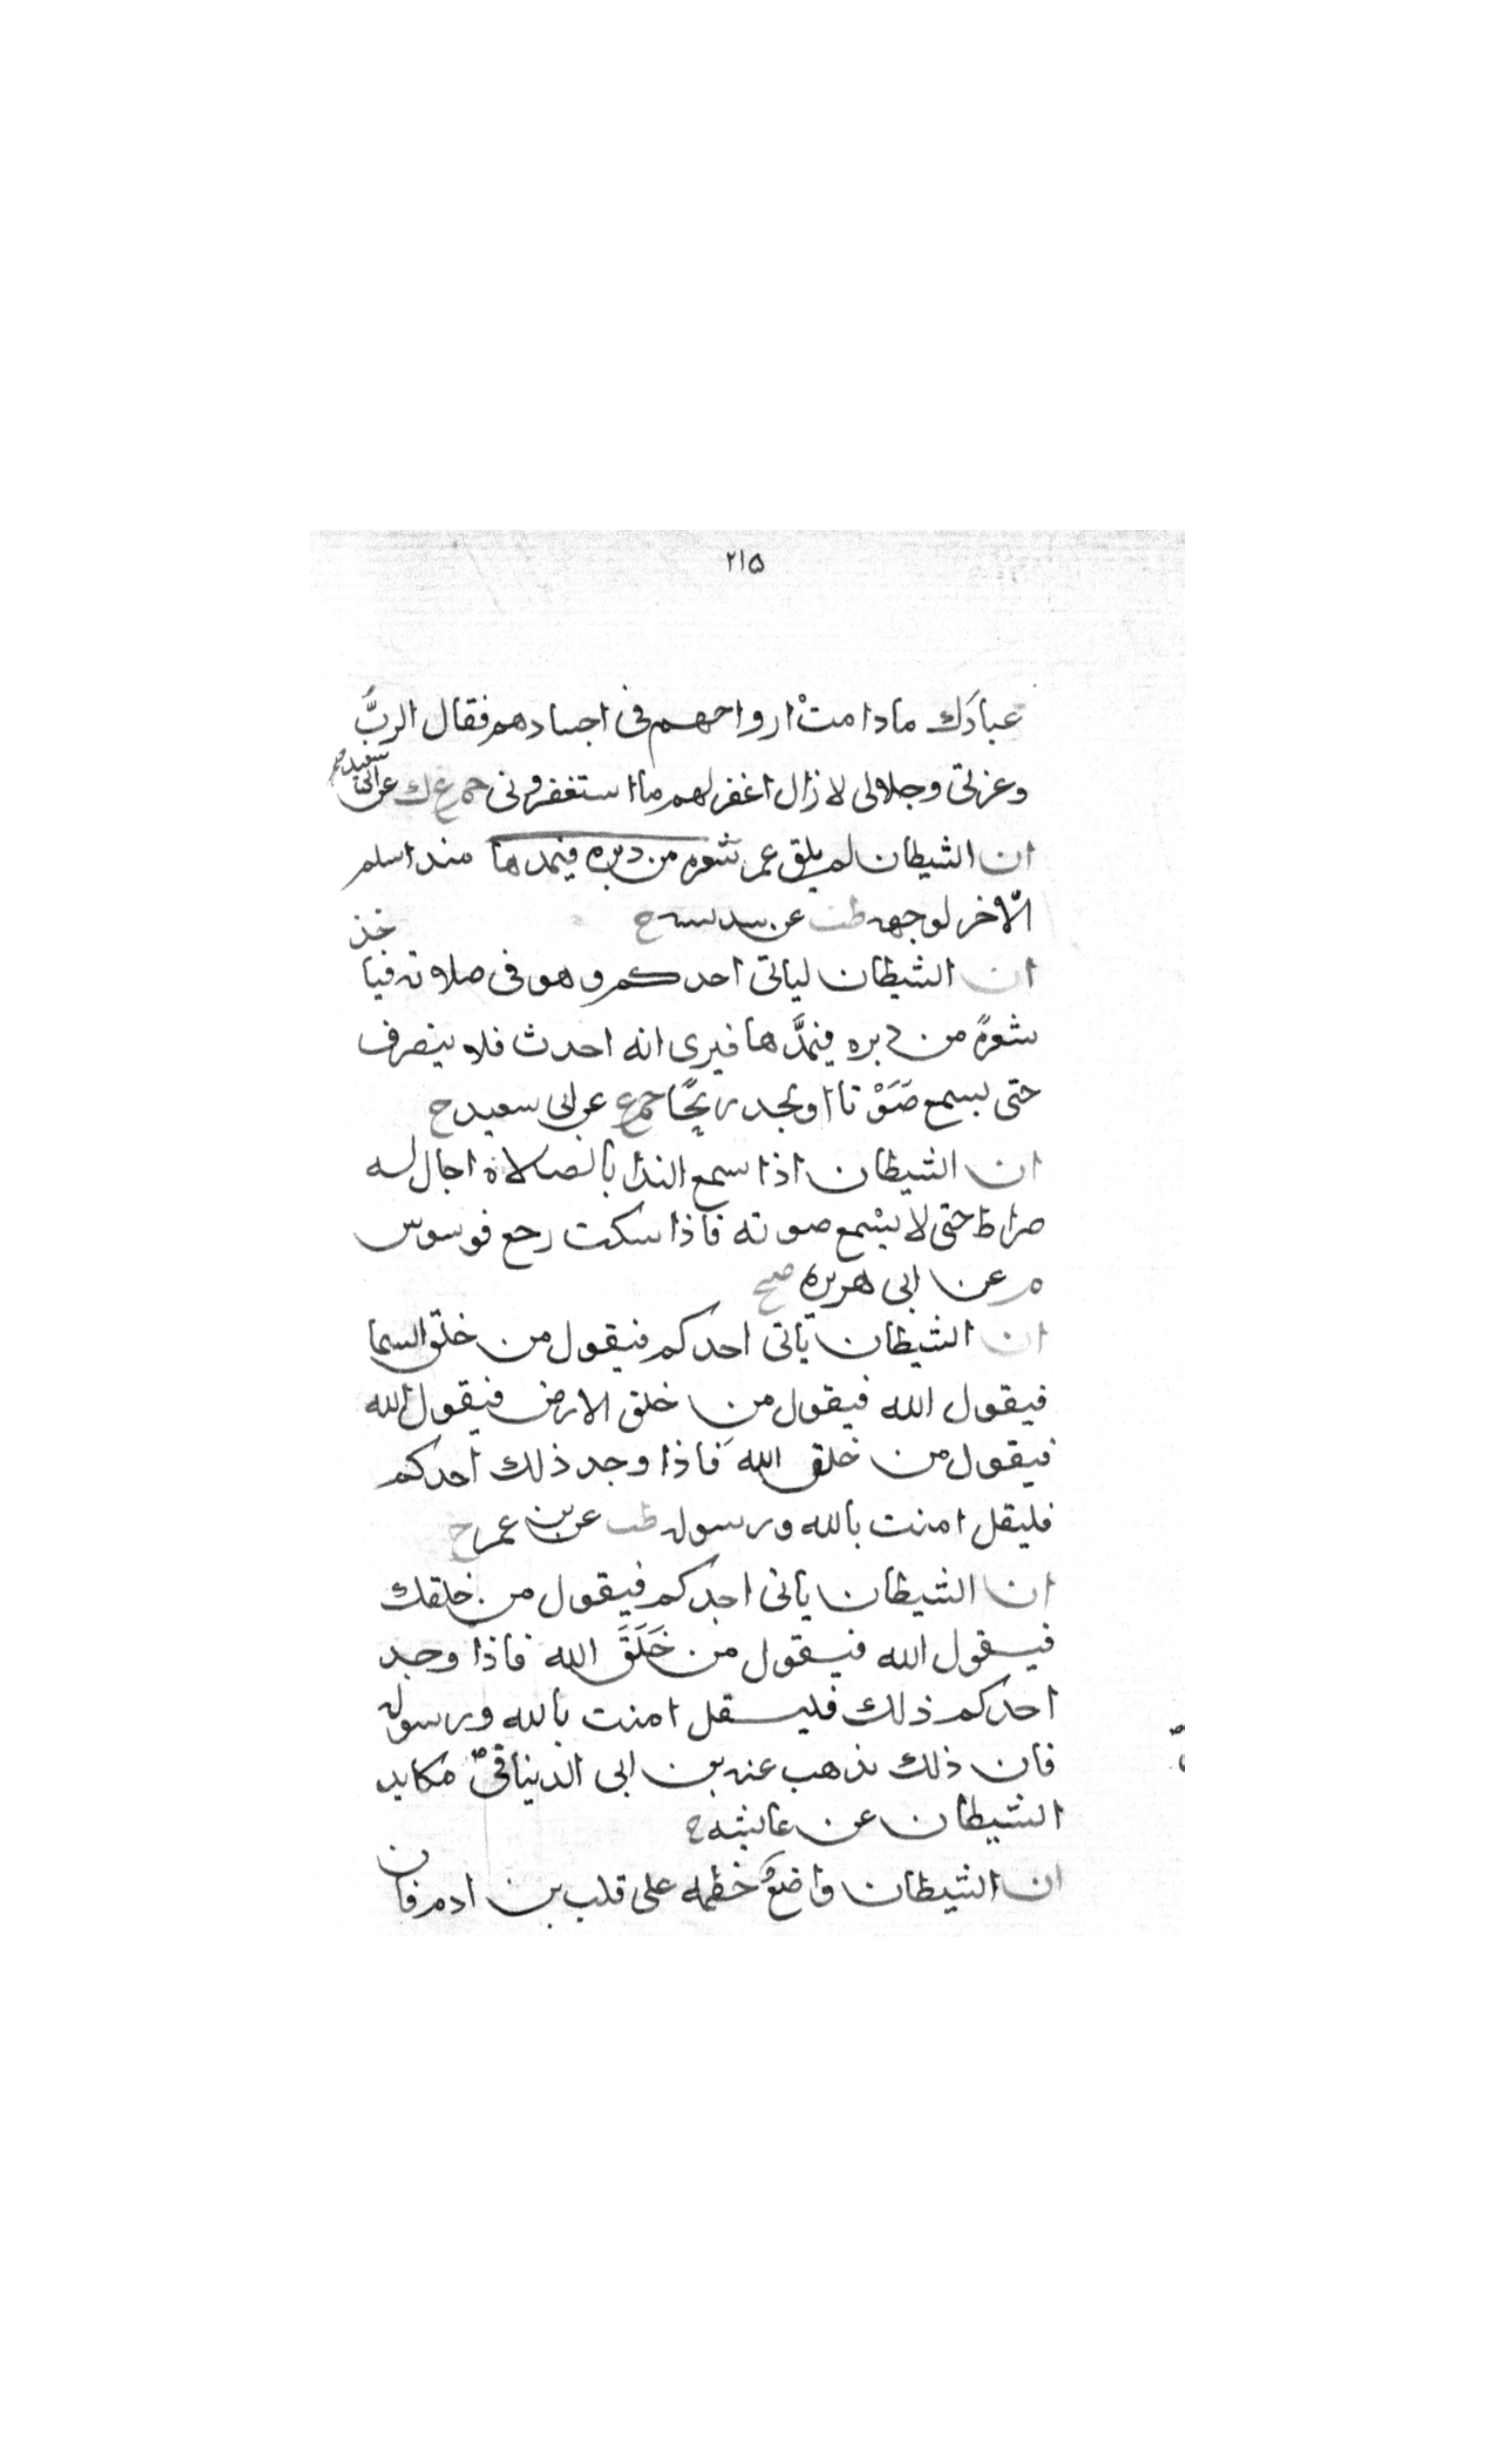 ٢١٥
عبادك مادامتْ ارواحهم فى اجسادهم فقال الربُّ
وعزتى وجلالى لا زال اغفر لهم ما استغفرونى حم ع ك عن ابى سعيد صح
ان الشيطان لم يلق عمر شعره من دبره فيمدها منذ اسلم
الّا خر لوجهه طب عن سديسه ح
ان الشيطان لياتى احدكم وهو فى صلاته فياخذ
شعرةً من دبره فيمدَّها فيرى انه احدث فلا ينصرف
حتى يسمع صَوْتا او يجد ريحًا حم ع عن ابى سعيد ح
ان الشيطان اذا سمع الندا بالصلاة احال له
ضراط حتى لا يسْمع صوته فاذا سكت رجع فوسوس
م عن ابى هريره صح
ان الشيطان ياتى احدكم فيقول من خلق السما
فيقول الله فيقول من خلق الارض فيقول الله
فيقول من خلق اللهَ فاذا وجد ذلك احدكم
فليقل امنت بالله ورسوله طب عن بن عمر ح
ان الشيطان ياتى احدكم فيقول من خلقك
فيقول الله فيقول من خَلَقَ الله فاذا وجد
احدكم ذلك فليقل امنت بالله ورسوله
فان ذلك يذهب عنه بن ابى الدنيا فى مكايد
الشيطان عن عايشه ح
ان الشيطان واضعٌ خطمه على قلب بن ادم فان